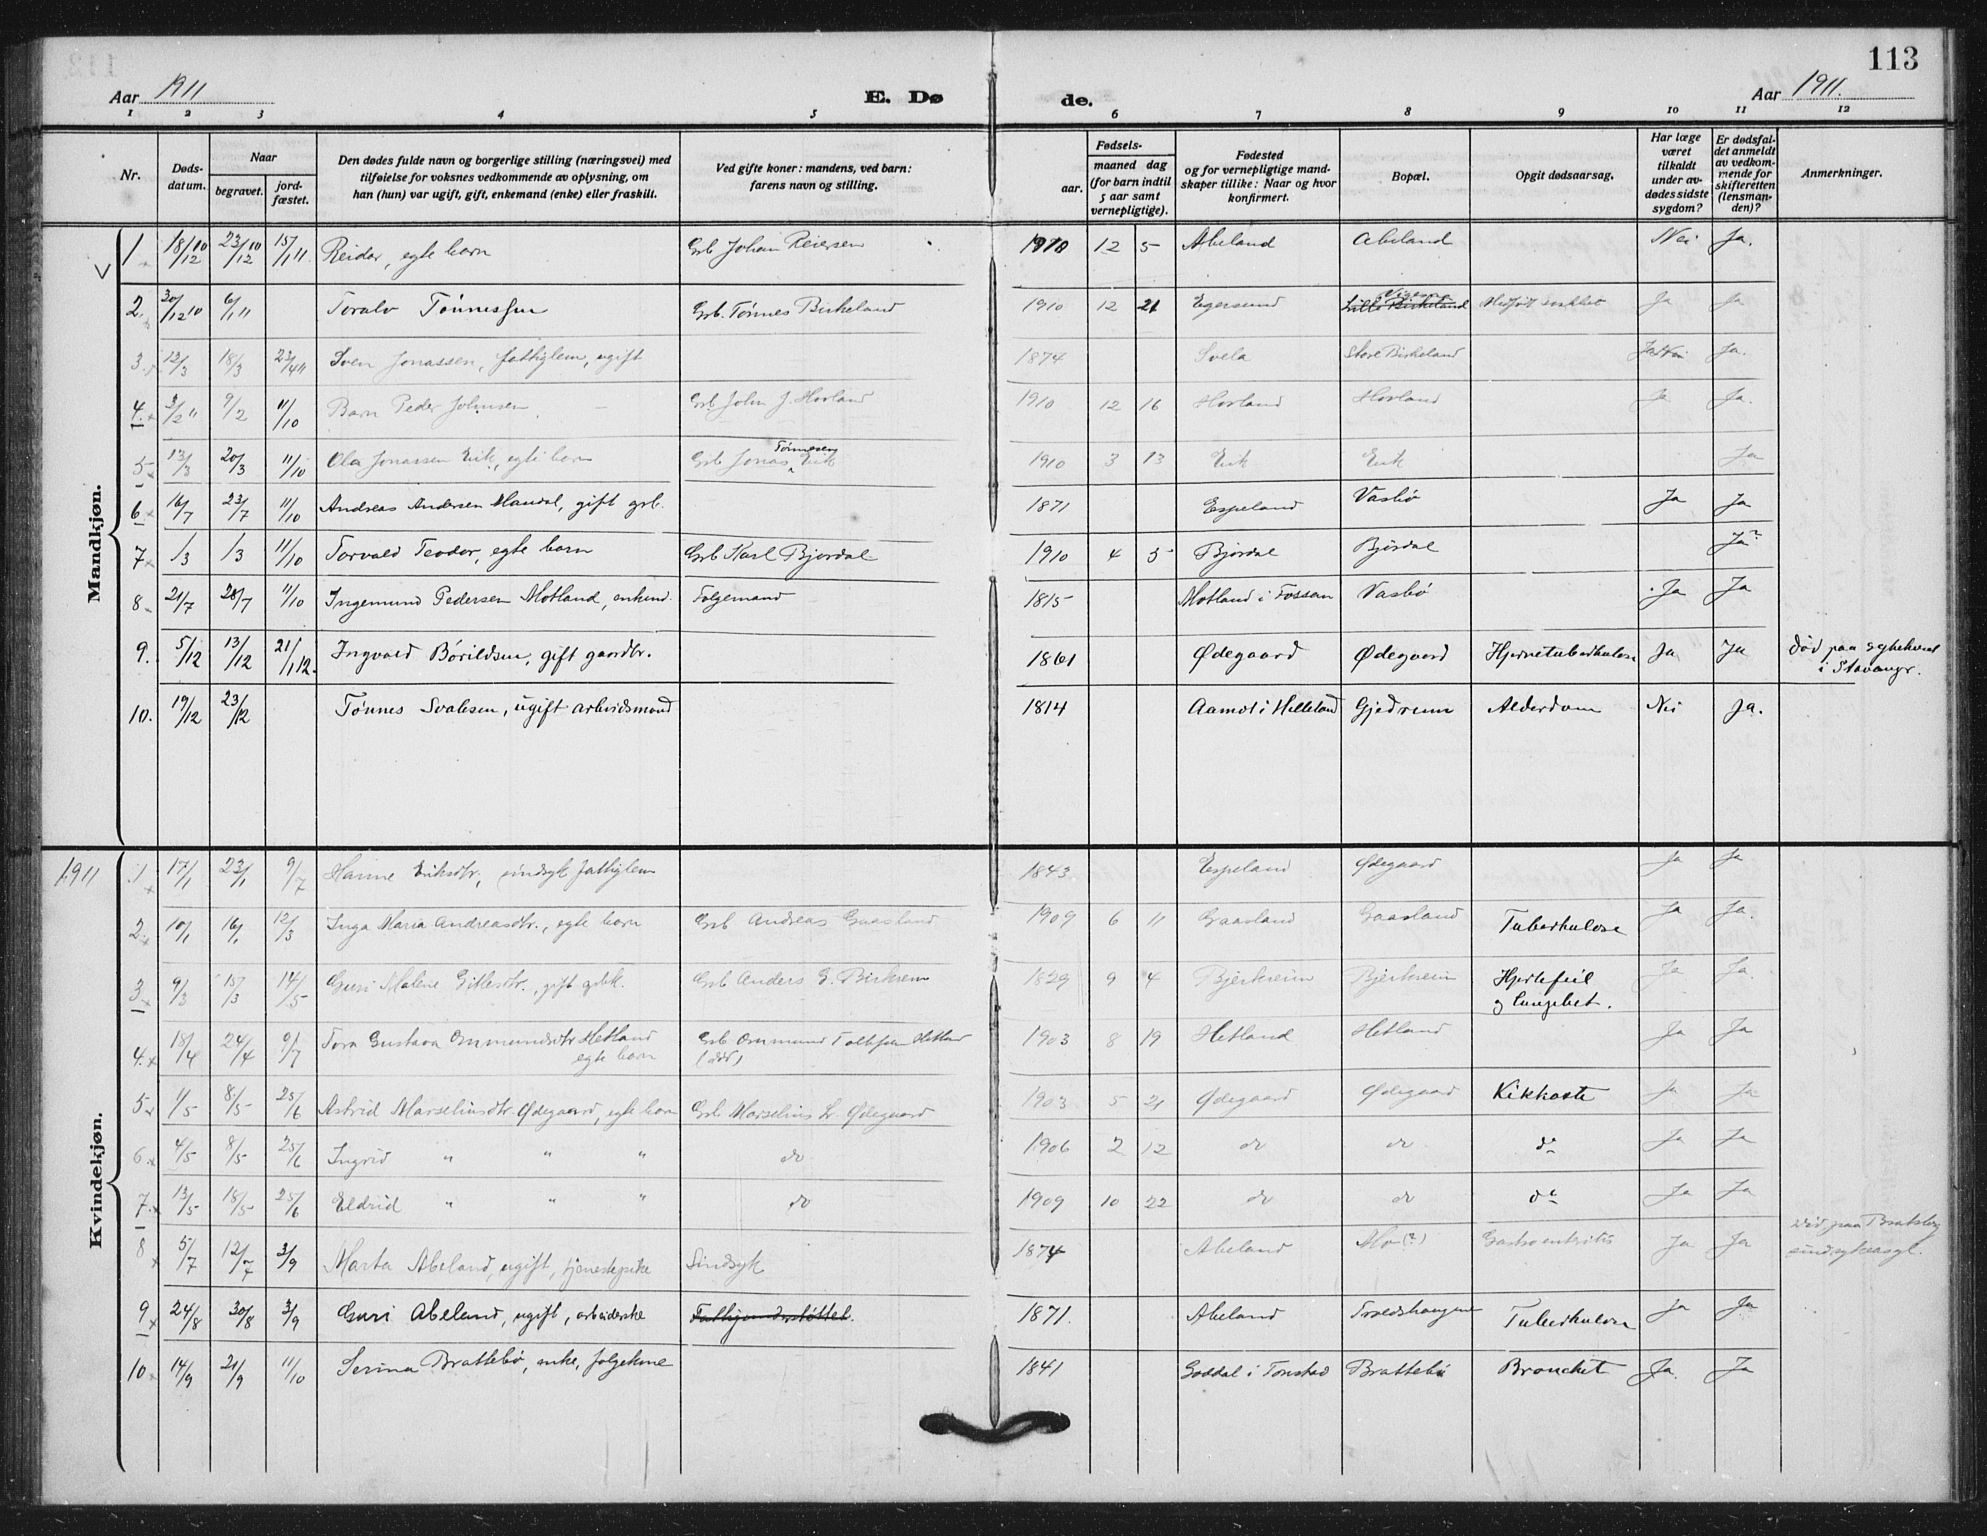 113
Aar 1911
E. Dø
de.
Aar 1911.
1 2 3 4 5 6 7 8 9 10 11 12
Nr.
Døds-
datum.
Naar
begravet.
jord-
fæstet.
Den dødes fulde navn og borgerlige stilling (næringsvei) med
tilføielse for voksnes vedkommende av oplysning, om
han (hun) var ugift, gift, enkemand (enke) eller fraskilt.
Ved gifte koner: mandens, ved barn:
farens navn og stilling.
Fødsels-
aar.
maaned dag
(for barn indtil
5 aar samt
vernepligtige).
Fødested
og for vernepligtige mand-
skaper tillike: Naar og hvor
konfirmert.
Bopæl.
Opgit dødsaarsag.
Har læge
været
tilkaldt
under av-
dødes sidste
sygdom?
Er dødsfal-
det anmeldt
av vedkom-
mende for
skifteretten
(lensman-
den)?
Anmerkninger.
Mandkjøn.
1 18/12 10 23/12 10 15/1 11 Reidar, egte barn Grb Johan Reiersen 1910 12 5 Abeland Abeland Nei Ja.
2 30/12 10 6/1 11 Toralv Tønnessen Grb. Tønnes Birkeland 1910 12 21 Egersund Lille Birkeland Ja Ja
3. 12/3 18/3 23/4 11 Sven Jonassen, fattiglem, ugift 1874 Svela Store Birkeland Ja Nei Ja.
4. 3/2 11 9/2 11/10 Barn Peder Johnsen Grb. John J. Hovland 1910 12 16 Hovland Hovland Ja Ja.
5 13/3 20/3 11/10 Ola Jonassen Eik, egte barn Grb Jonas Tønnesen Eik 1910 3 13 Eik Eik Ja
6 16/7 23/7 11/10 Andreas Andersen Mandal, gift grb. 1871 Espeland Vasbø Ja Ja
7 1/3 1/3 11/10 Torvald Teodor, egte barn Grb Karl Bjordal 1910 4 5 Bjordal Bjordal Ja
8 21/7 28/7 11/10 Ingemund Pedersen Motland, enkem. Folgemand 1815 Motland i Fossan Vasbø Ja Ja
9. 5/12 13/12 21/1 12. Ingvald Børildsen, gift gaardbr. 1861 Ødegaard Ødegaard Hjernetuberkulose Ja Ja Død paa sykehuset
i Stavanger.
10. 19/12 23/12 Tønnes Svalesen, ugift arbeidsmand 1814 Aamot i Helleland Gjedrem Alderdom Nei Ja.
1911
Kvindekjøn.
1 17/1 23/1 9/7 Hanne Eriksdtr, sindsyk fattiglem 1843 Espeland Ødegaard Ja Ja
2. 10/1 16/1 12/3 Inga Maria Andreasdtr., egte barn Grb Andreas Gaasland 1909 6 11 Gaasland Gaasland Tuberkulose Ja Ja.
3 9/3 15/3 14/5 Guri Malene Gitlesdtr., gift grbk. Grb Anders G. Birkrem 1829 9 4 Bjerkreim Bjerkreim Hjertefeil Ja Ja.
4. 18/4 24/4 9/7 Tora Gustava Ommundsdtr Hetland
egte barn Grb Ommund Tollefsen Hetland
(død) 1903 8 19 Hetland Hetland Ja Ja
5 1/5 8/5 25/6 Astrid Marseliusdtr. Ødegaard, egte barn Grb Marselius L. Ødegaard 1903 5 21 Ødegaard Ødegaard Kikhoste Ja Ja
6 4/5 8/5 25/6 Ingrid " " " do 1906 2 12 do do do Ja Ja
7 13/5 18/5 25/6 Eldrid " " " do 1909 10 22 do do do Ja Ja
8 5/7 12/7 3/9 Marta Abeland, ugift, tjenestepike Sindsyk 1874 Abeland Mo (?) Gastroenteritis Ja Ja Død paa Bratsberg
sindsykeasyl.
9 24/8 30/8 3/9 Guri Abeland, ugift, arbeiderske 1871. Abeland Tuberkulose Ja Ja
10 14/9 21/9 11/10 Serina Brattebø, enke, folgekone 1841 Goddal i Tonstad Brattebø Bronchit Ja. Ja